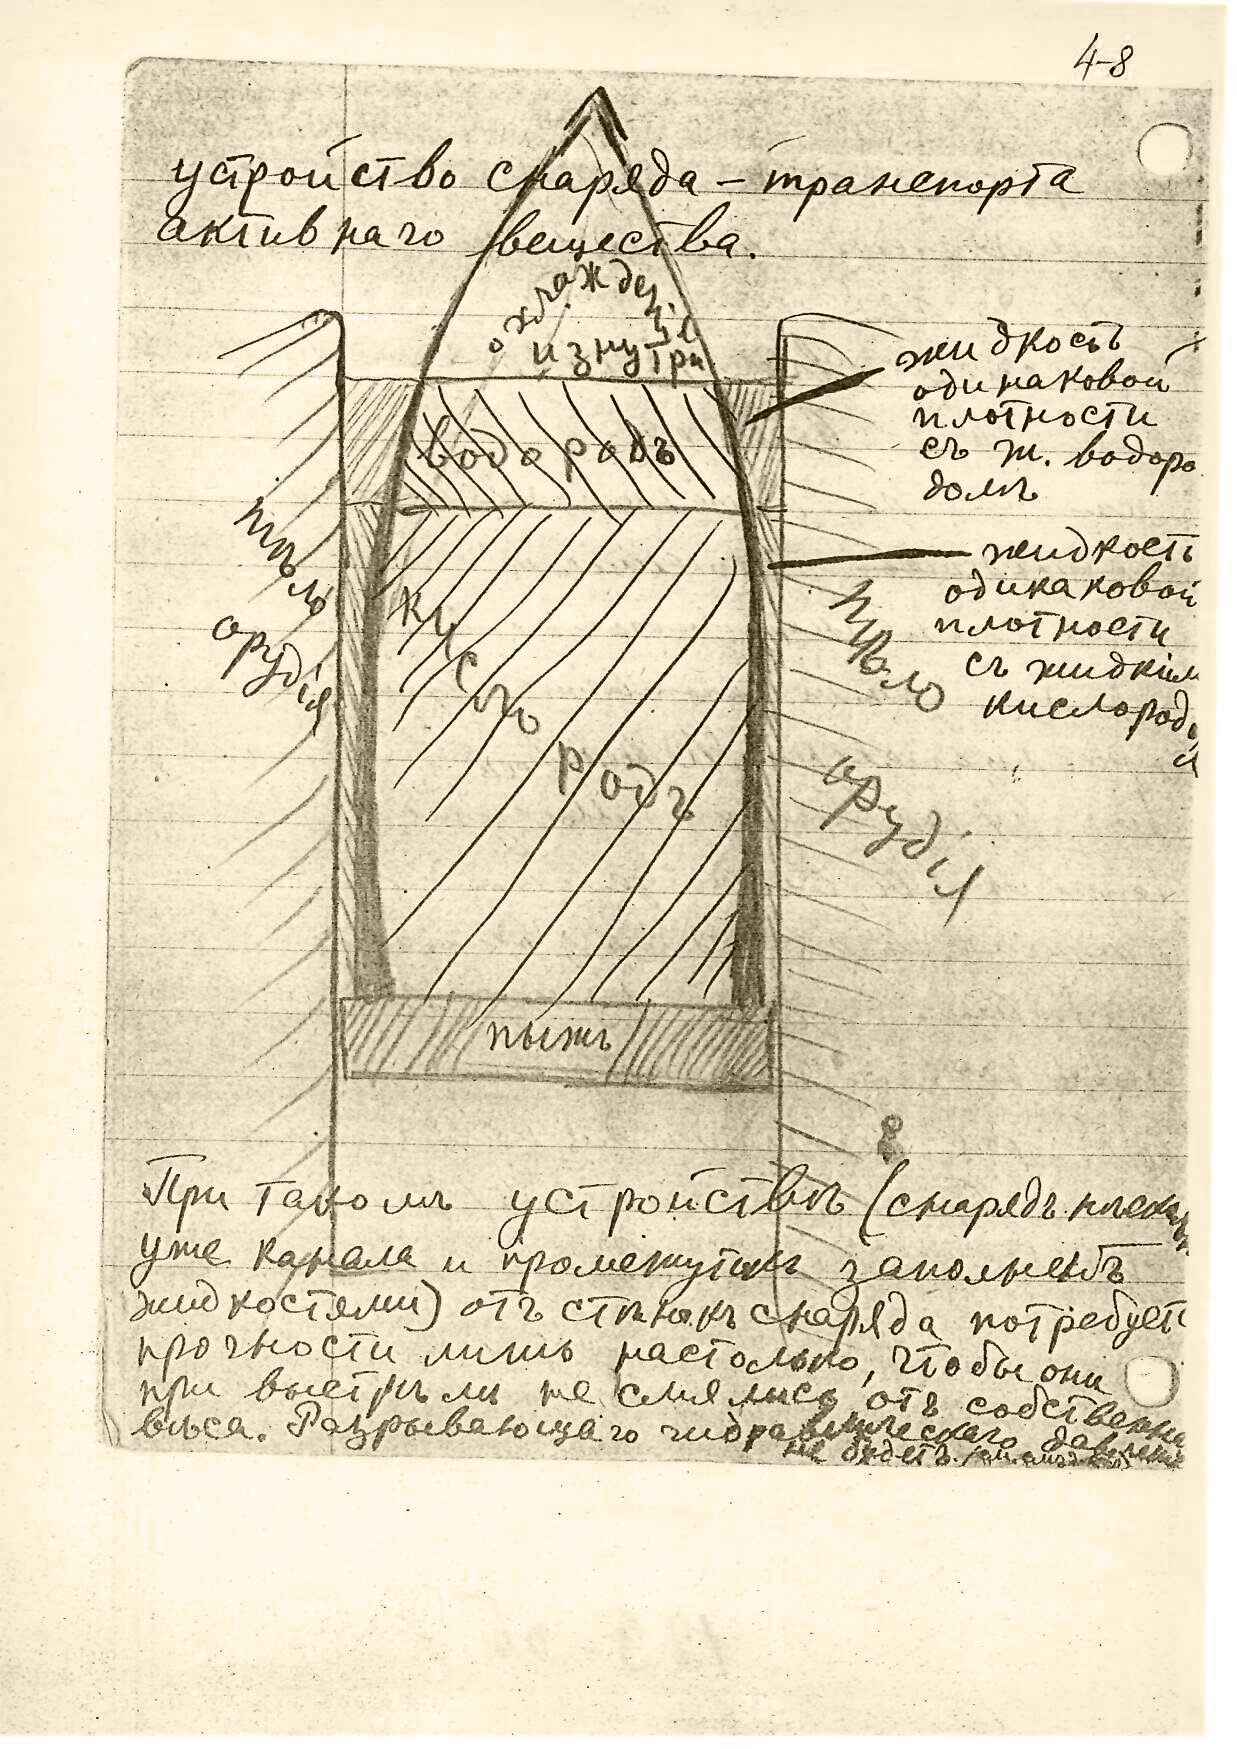 4-8
устройство снаряда – транспорта
активнаго вещества.
охлажденiе
изнутри
водородъ
жидкость
одинаковой
плотности
съ ж. водоро
домъ
тѣло
орудiя
кислородъ
жидкость
одинаковой
плотности
съ жидкiм
кислород
тѣло
орудiя
пыжъ
При такомъ устройствѣ (снарядъ
уже канала и промежутокъ заполненъ
жидкостями) отъ стѣнокъ снаряда потребует
прочности лишь настолько, чтобы они
при выстрѣлѣ не смялись отъ собственна
вѣса. Разрывающаго гидравлическаго давленiя
не будетъ.